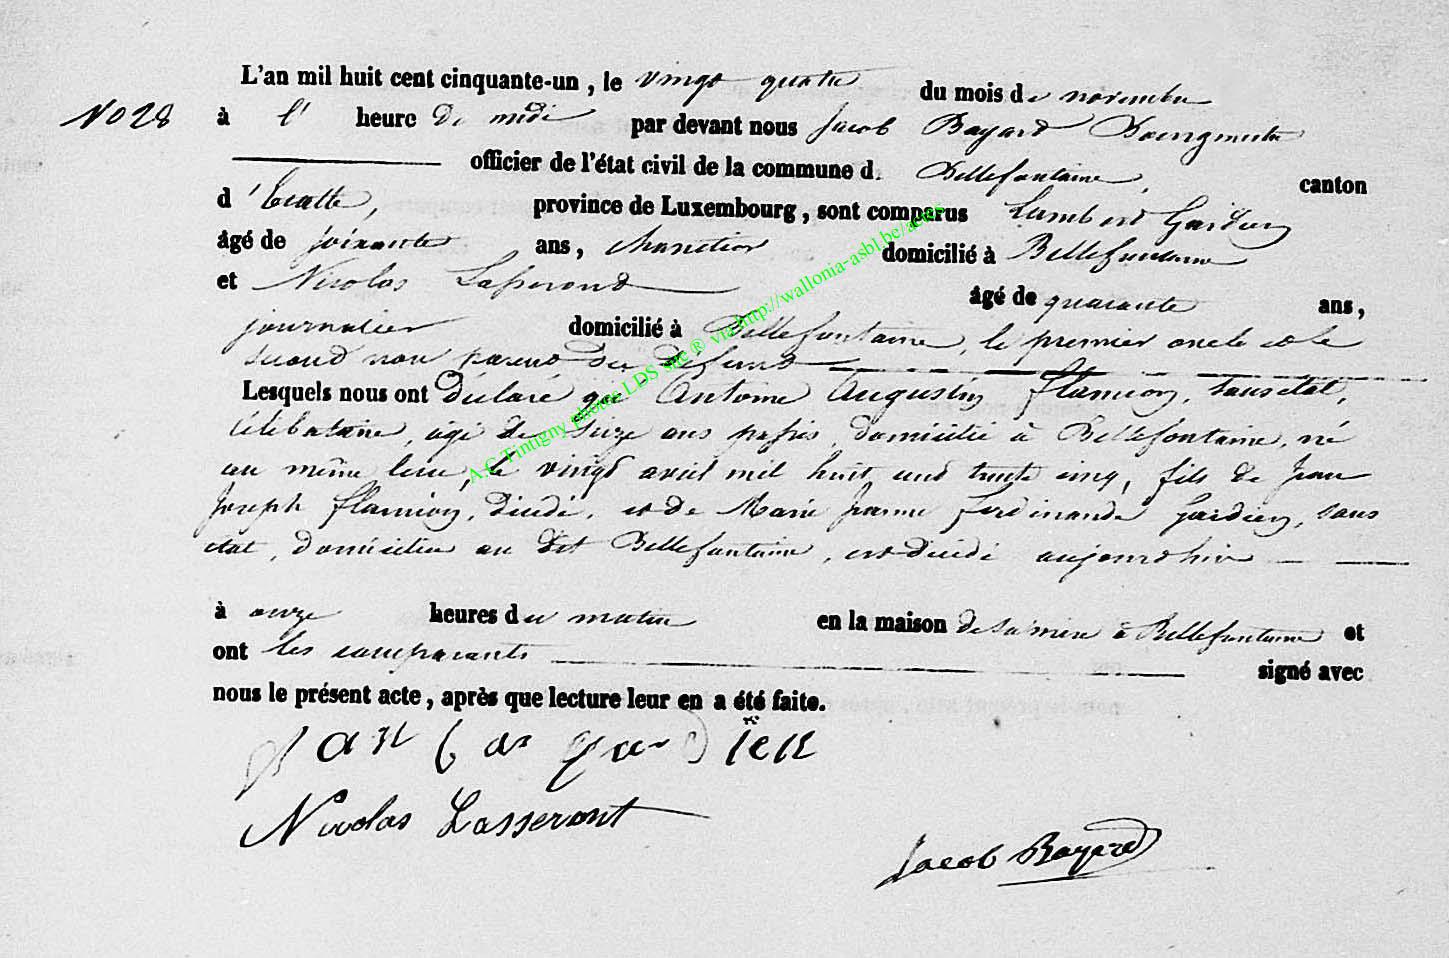 L'an mil huit cent cinquante-un, le vingt quatre du mois de novembre
No 28 à l' heure de midi par devant nous Jacob Bayard Bourgmestre
officier de l'état civil de la commune d. Bellefontaine, canton
d'Etalle, province de Luxembourg, sont comparus Lambert Gardien
âgé de soixante ans, domicilié à Bellefontaine
et Nicolas Lasserond âgé de quarante ans,
journalier domicilié à Bellefontaine, le premier oncle et le
second non parent du défunt
Lesquels nous ont déclaré que Antoine Augustin Flamion, sans état,
célibataire, âgé de seize ans passés, domicilié à Bellefontaine, né
au même lieu, le vingt avril mil huit cent trente cinq, fils de Jean
Joseph Flamion, décédé, et de Marie Jeanne Ferdinande Gardien, sans
état, domiciliée au dit Bellefontaine, est décédé aujourd'hui
à onze heures du matin en la maison de sa mère à Bellefontaine et
ont les comparants signé avec
nous le présent acte, après que lecture leur en a été faite.
gardien
Nicolas Lasseront
Jacob Bayard
A.G Tintigny photos LDS sàc ® via http://wallonia-asbl.be/actes